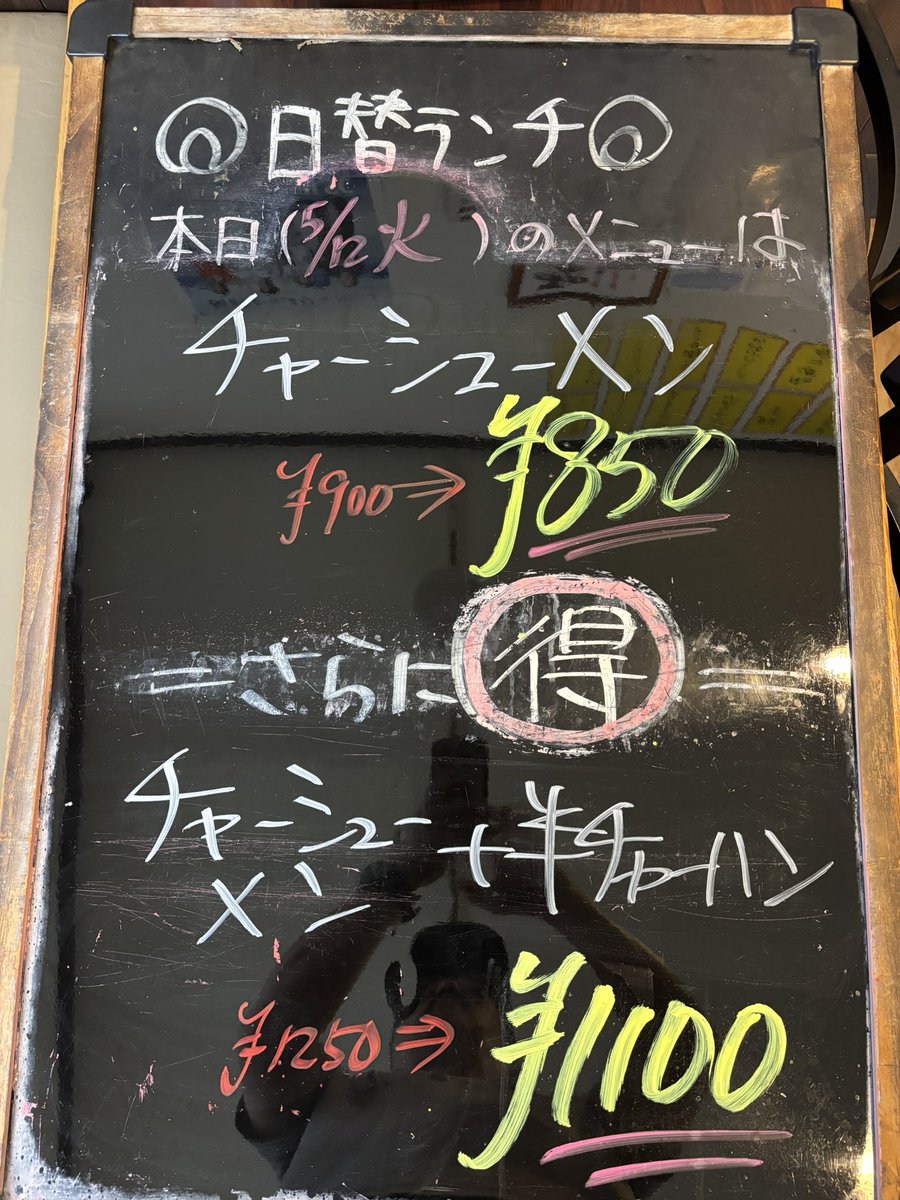 ◎日替ランチ◎
本日(5/12火)のメニューは
チャーシューメン
¥900→¥850
=さらに得=
チャーシューメン+半チャーハン
¥1250→¥1100